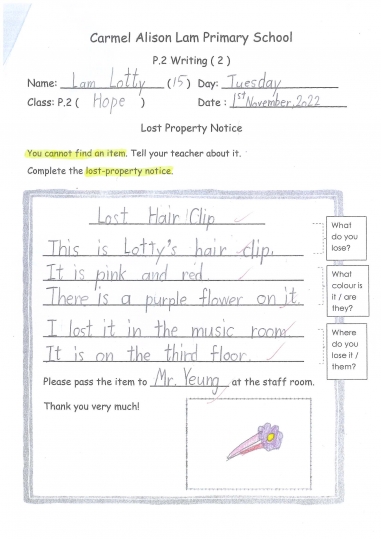 Carmel Alison Lam Primary School
P.2 Writing ( 2 )
Name: Lam Lotty (15) Day: Tuesday
Class: P.2 ( Hope ) Date : 1st November, 2022
Lost Property Notice
You cannot find an item. Tell your teacher about it.
Complete the lost-property notice.
Lost Hair Clip
This is Lotty's hair clip.
What do you lose?
It is pink and red.
There is a purple flower on it.
What colour is it / are they?
I lost it in the music room
It is on the third floor.
Where do you lose it / them?
Please pass the item to Mr. Yeung at the staff room.
Thank you very much!